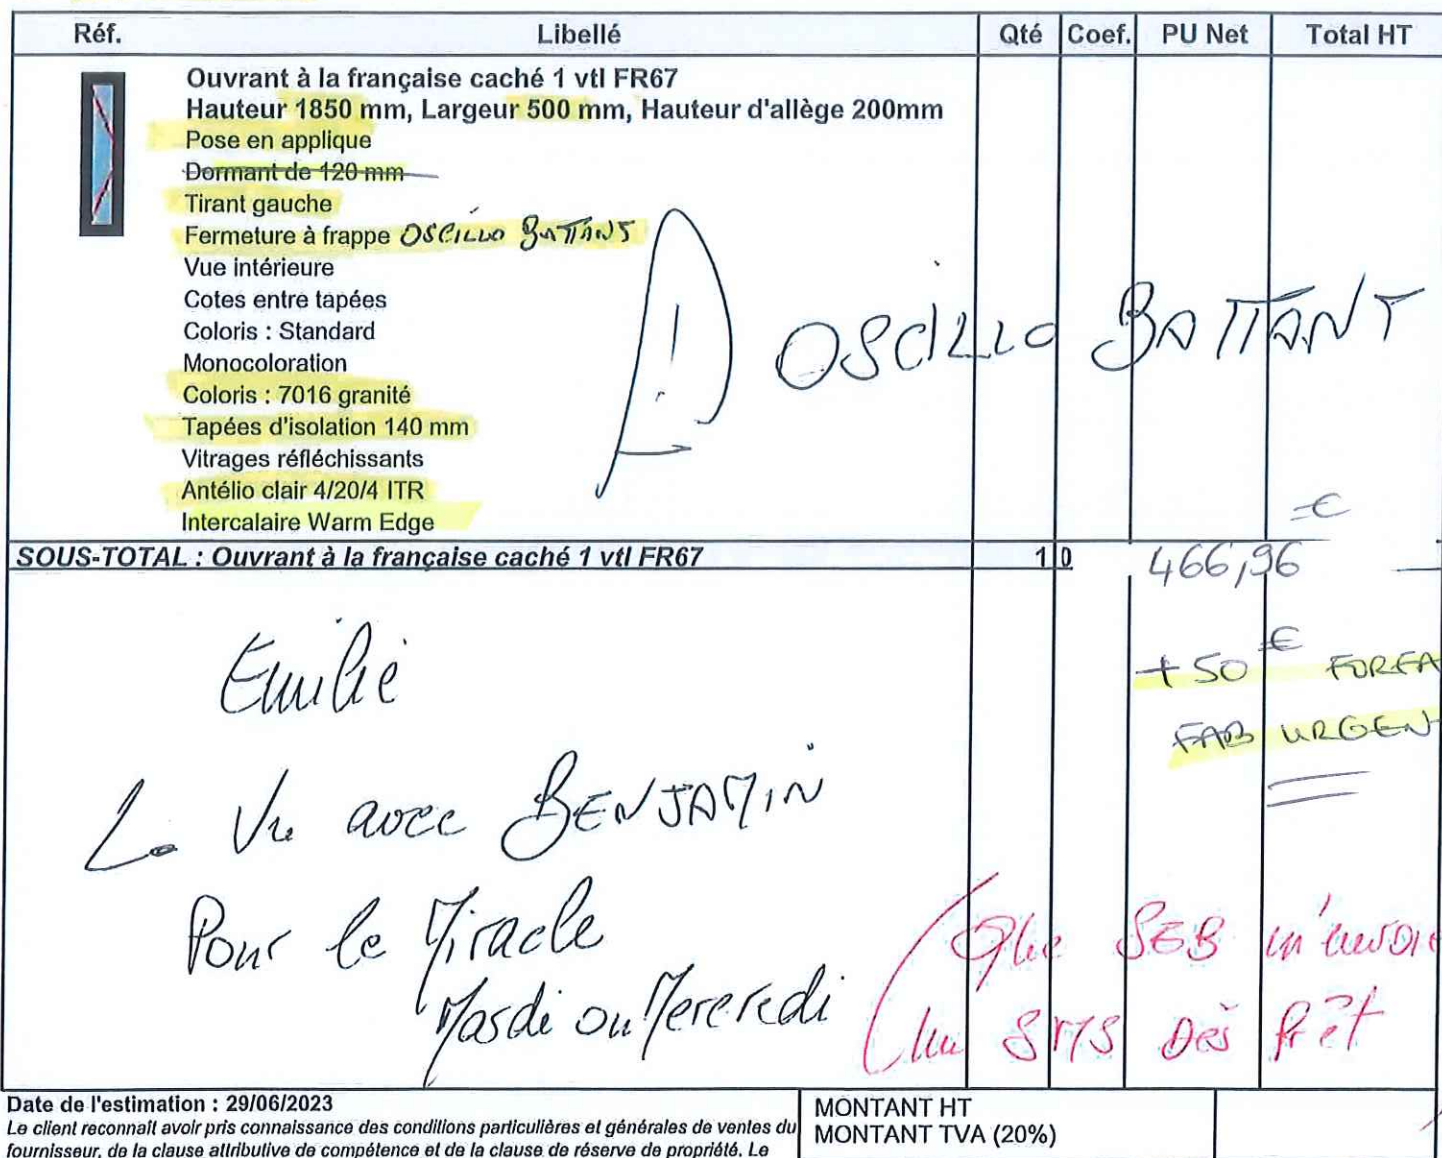 Réf. Libellé Qté Coef. PU Net Total HT
Ouvrant à la française caché 1 vtl FR67
Hauteur 1850 mm, Largeur 500 mm, Hauteur d'allège 200mm
Pose en applique
Dormant de 120 mm
Tirant gauche
Fermeture à frappe OSCILLO BATTANT
Vue intérieure
Cotes entre tapées
Coloris : Standard
Monocoloration
Coloris : 7016 granité
Tapées d'isolation 140 mm
Vitrages réfléchissants
Antélio clair 4/20/4 ITR
Intercalaire Warm Edge
! OSCILLO BATTANT
€
SOUS-TOTAL : Ouvrant à la française caché 1 vtl FR67 1 0 466,96
+ 50 € FORFA
FAB URGENT
Emilie
Vu avec BENJAMIN
Pour le Miracle
Mardi ou Mercredi
Que SEB m'envoie
un SMS Dès Prêt
Date de l'estimation : 29/06/2023
Le client reconnaît avoir pris connaissance des conditions particulières et générales de ventes du
fournisseur, de la clause attributive de compétence et de la clause de réserve de propriété. Le
MONTANT HT
MONTANT TVA (20%)